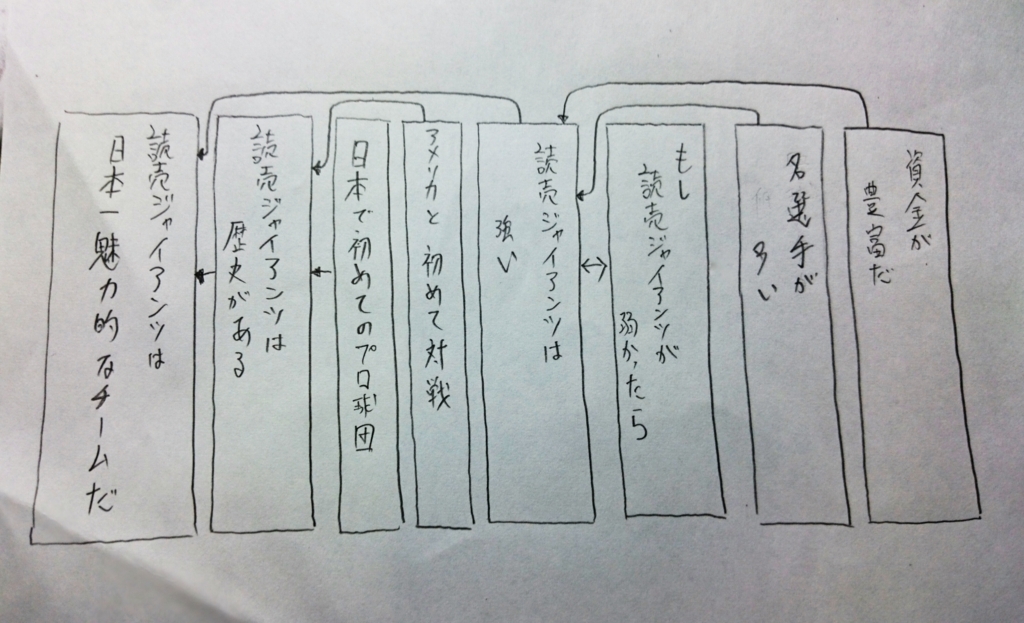 資金が
豊富だ
名選手が
多い
もし
読売ジャイアンツが
弱かったら
読売ジャイアンツは
強い
アメリカと初めて対戦
日本で初めてのプロ球団
読売ジャイアンツは
歴史がある
読売ジャイアンツは
日本一魅力的なチームだ